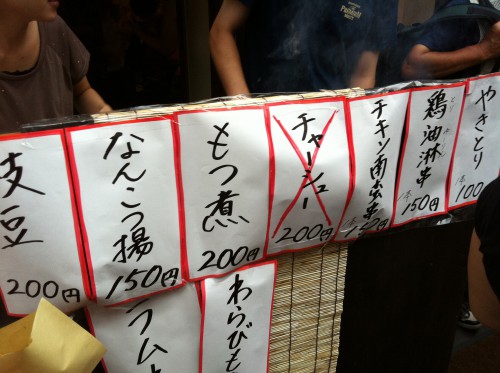 枝豆
200円
なんこつ揚
150円
もつ煮
200円
チャーシュー
200円
チキン南蛮串
1本
150円
鶏油淋串
1本
150円
やきとり
1本
100
ラム
わらびも